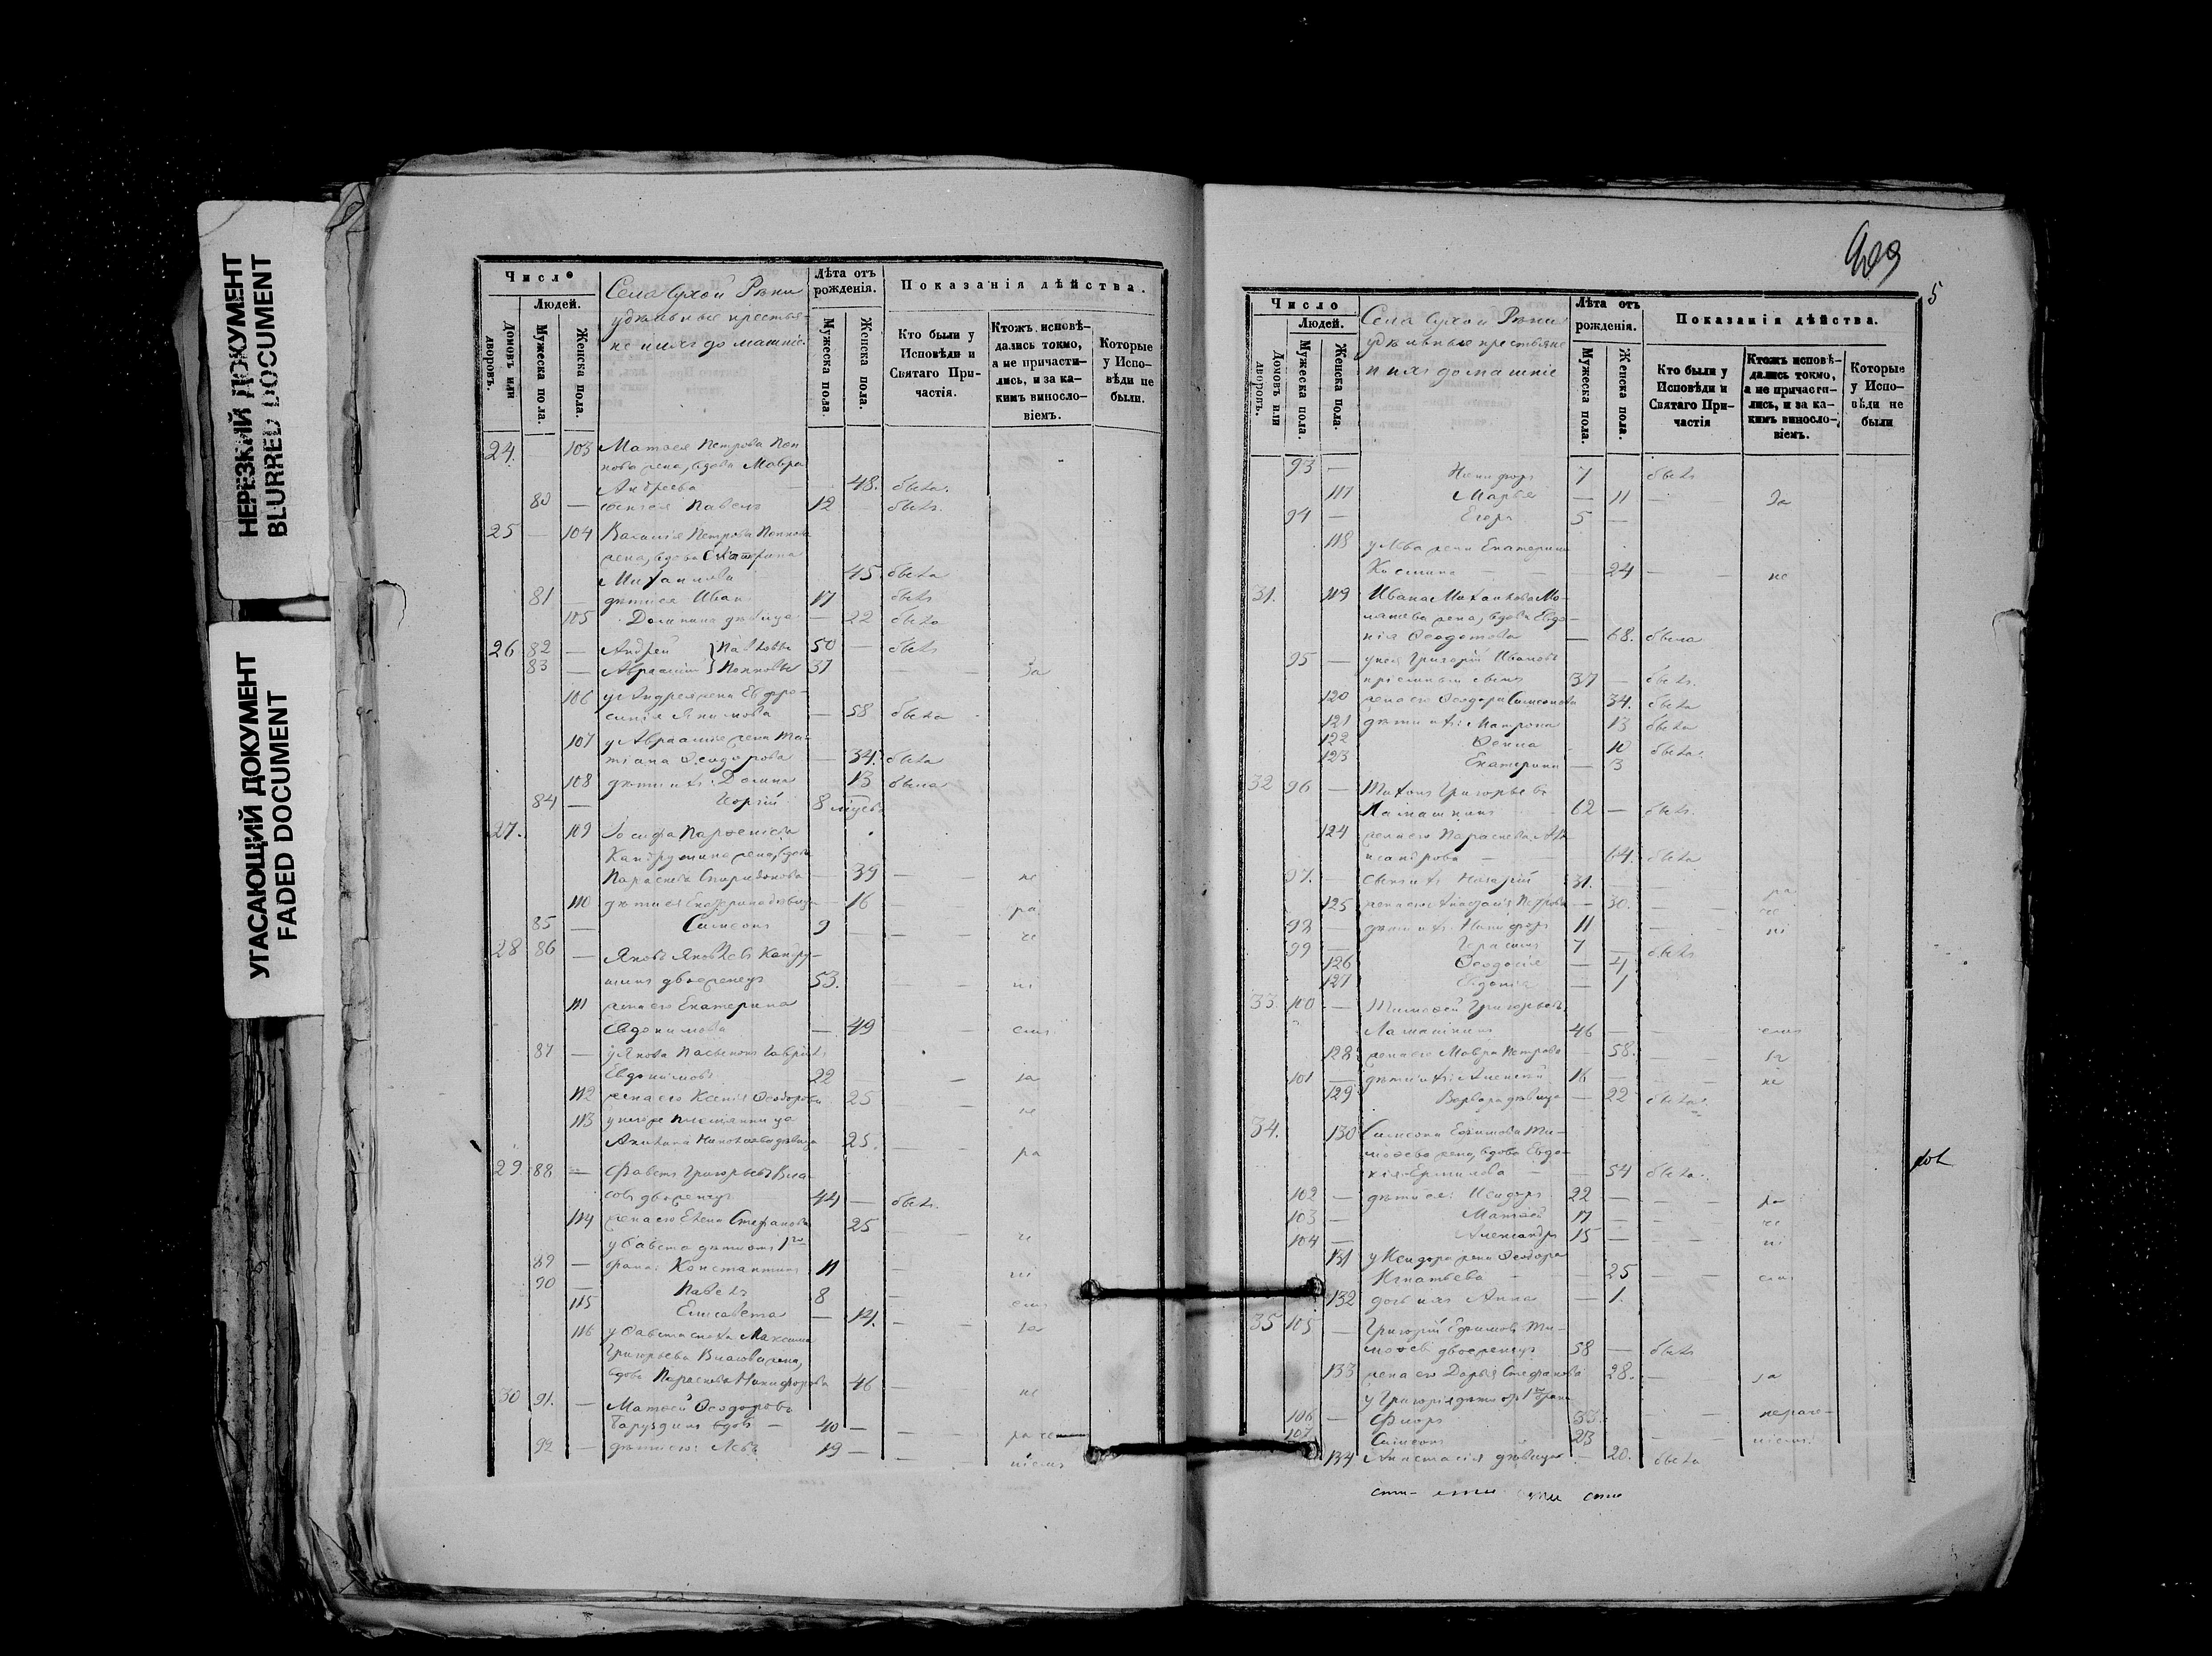 НЕРЕЗКИЙ ДОКУМЕНТ
BLURRED DOCUMENT
УГАСАЮЩИЙ ДОКУМЕНТ
FADED DOCUMENT
Число
Людей.
Домовъ или дворовъ.
Мужеска пола.
Женска пола.
Села Сухой Рѣки
удѣльные крестья-
не и ихъ домашніе
Лѣта отъ рожденія.
Мужеска пола.
Женска пола.
Показанія дѣйства.
Кто были у Исповѣди и Святаго Причастія.
Ктожъ исповѣ-
дались токмо,
а не причасти-
лись, и за ка-
кимъ винosло-
віемъ.
Которые
у Испо-
вѣди не
были.
24. 103 Матѳея Петрова Поп
кова жена, вдова Мавра
Андреева 48. была.
80 — Павелъ 12 — былъ.
25 — 104 Василія Петрова Попкова
жена, вдова Екатерина
Михаилова 45. была
81 — дѣти ея Иванъ 17 былъ
105 дѣвица — 22 была
26 82 — Андрей Павловы 50 — былъ
83 — Авраамій Попковы 37 — за
106 у Андрея жена Евфро-
синія Якимова — 58 была
107 у Авраамія жена Та-
тіана Ѳеодорова — 34. была
108 дѣти ихъ: 13 была
84 — 8 мѣсяц.
27. 109 Іосифа Парѳеніева
жена, вдова
Параскева Спиридонова — 39 — не
110 дѣти ея Екатерина дѣвица — 16 — ра
85 — Симеонъ 9 — — че
28 86 — Яковъ Яковлевъ Канд
двоеженецъ 53. — — ні
111 жена его Екатерина
Евдокимова — 49 — — емъ
87 — у Якова пасынокъ Гавріилъ
Евдокимовъ 22 — — за
112 жена его Ксенія Ѳеодорова 25 — — не
113 у него же племянница
Акилина дѣвица 25. — — ра
29. 88 — Фавстъ Григорьевъ Вла-
совъ двоеженецъ 44 — былъ.
114 жена его Елена Стефанова 25 — че
у Фавста дѣти отъ 1го
89 — брака: Константинъ 11 — ні
90 — Павелъ 8 — емъ
115 Елисавета — 14. — за
116 у Фавста сноха Максима
Григорьева Власова жена,
вдова Параскева Никифорова 46 — не
30 91. — Матѳей Ѳеодоровъ
вдовъ — 40 — — раче
92 — дѣти его: Левъ 19 — — ніемъ
409
5
Число
Людей.
Домовъ или дворовъ.
Мужеска пола.
Женска пола.
Села Сухой Рѣки
удѣльные крестьяне
и ихъ домашніе
Лѣта отъ
рожденія.
Мужеска пола.
Женска пола.
Показанія дѣйства.
Кто были у
Исповѣди и
Святаго При-
частія
Ктожъ исповѣ-
дались токмо,
а не причасти-
лись, и за ка-
кимъ винosло-
віемъ.
Которые
у Испо-
вѣди не
были
93 — Никифоръ 7 былъ
117 Марья — 11 — За
94 — Егоръ 5 —
118 у Льва жена Екатерина
Косьмина — — 24 — — не
31. 119 Ивана Михаилова
жена, вдова Евдо-
кія Ѳеодотова — 68. была
95 — у нея Григорій Ивановъ
пріемный сынъ 37 — былъ.
120 жена его Ѳеодора Симеонова 34. была
121 дѣти ихъ: Матрона 13 была
122 10 была.
123 Екатерина — 3
32 96 — Тихонъ Григорьевъ
Ламашкинъ 62 — былъ.
124 жена его Параскева Але
ксандрова — 64. была
97. — сынъ ихъ Назарій 31. — — ра
125 жена его Анастасія Петрова — 30. — — че
98 — дѣти ихъ: Никифоръ 11 — ні
99 — Герасимъ 7 — былъ
126 Ѳеодосія — 4
127 Евдокія — 1
33 100 — Тимоѳей Григорьевъ
Ламашкинъ 46 — — емъ
128 жена его Мавра Петрова — 58. — — за
101 — дѣти ихъ: Алексѣй 16 — — не
129 Варвара дѣвица — 22 была.
34. 130 Симеона Ефимова Ти-
моѳеева жена, вдова Евдо-
кія Ермилова — — 54 была.
102 — дѣти ея: Исидоръ 22 — — ра
103 — Матѳей 17 — — че
104 — Александръ 15 — — ні
131 у Исидора жена Ѳеодора
Игнатьева — — 25 — — емъ
132 дочь ихъ Анна — 1.
35 105 — Григорій Ефимовъ Ти-
моѳеевъ двоеженецъ 58 — былъ
133 жена его Дарья Стефанова 28. — за
у Григорія дѣти отъ 1го брака
106 — Флоръ 33. — — нераче-
107 Симеонъ 23 — — ніемъ.
134 Анастасія дѣвица — 20. была